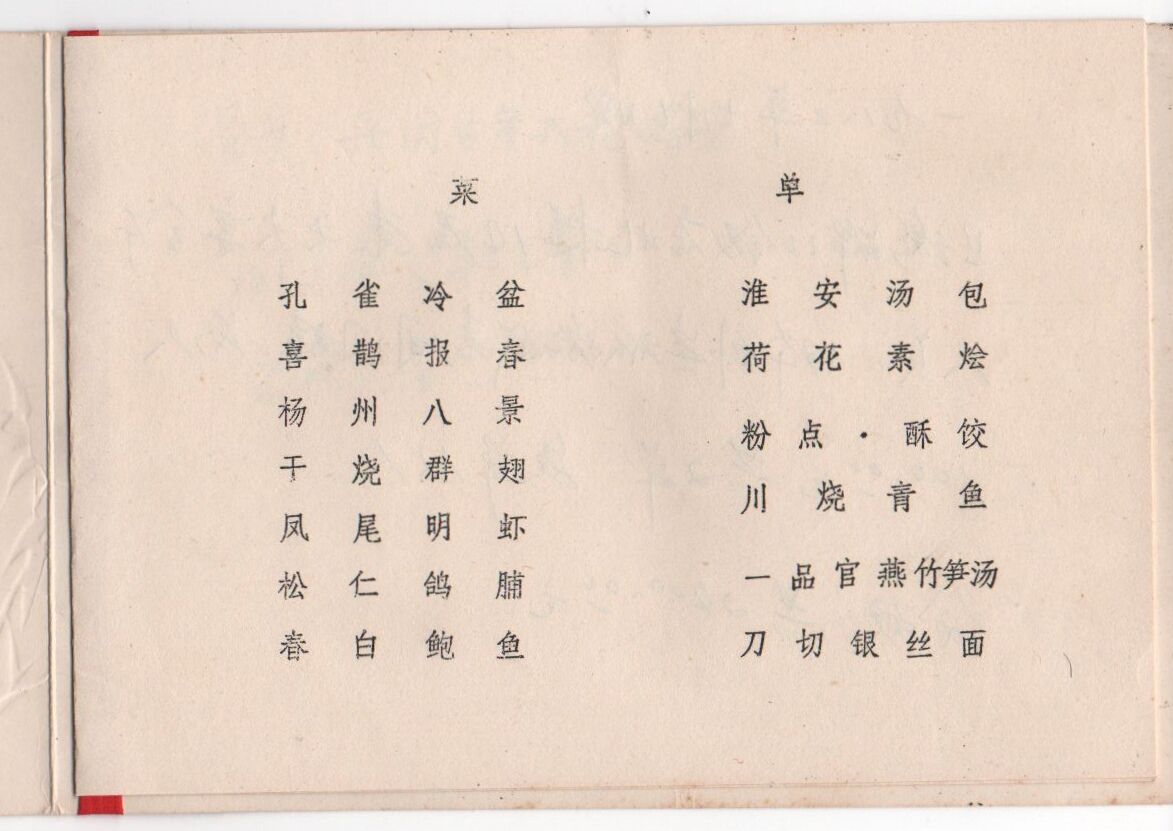 菜单
孔雀冷盆
喜鹊报春
杨州八景
干烧群翅
凤尾明虾
松仁鸽脯
春白鲍鱼
淮安汤包
荷花素烩
粉点·酥饺
川烧青鱼
一品官燕竹笋汤
刀切银丝面